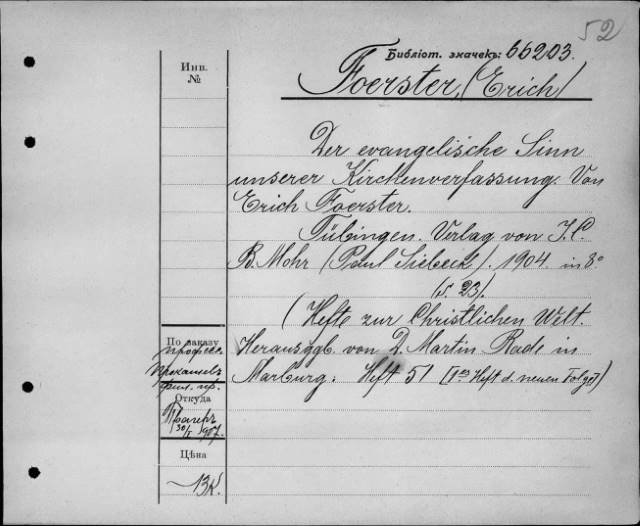 52
Библіот. значекъ: 66203.
Инв.
№
Foerster, (Erich)
Der evangelische Sinn
unserer Kirchenverfassung. Von
Erich Foerster.
Tübingen. Verlag von J. C.
B. Mohr (Paul Siebeck). 1904. in 8°
(S. 23).
(Hefte zur Christlichen Welt.
По заказу
Herausggb. von D. Martin Rade in
Marburg. Heft 51 (1es Heft d. neuen Folge))
Откуда
30/I 907.
Цѣна